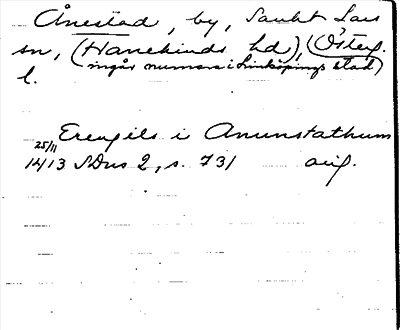 Ånestad, by, Sankt Lars
sn, (Hanekinds hd), (Österg.
l. ingår numera i Linköpings stad)
Erengils i Anunstathum
25/11
1413 SDns 2, s. 731 avg.